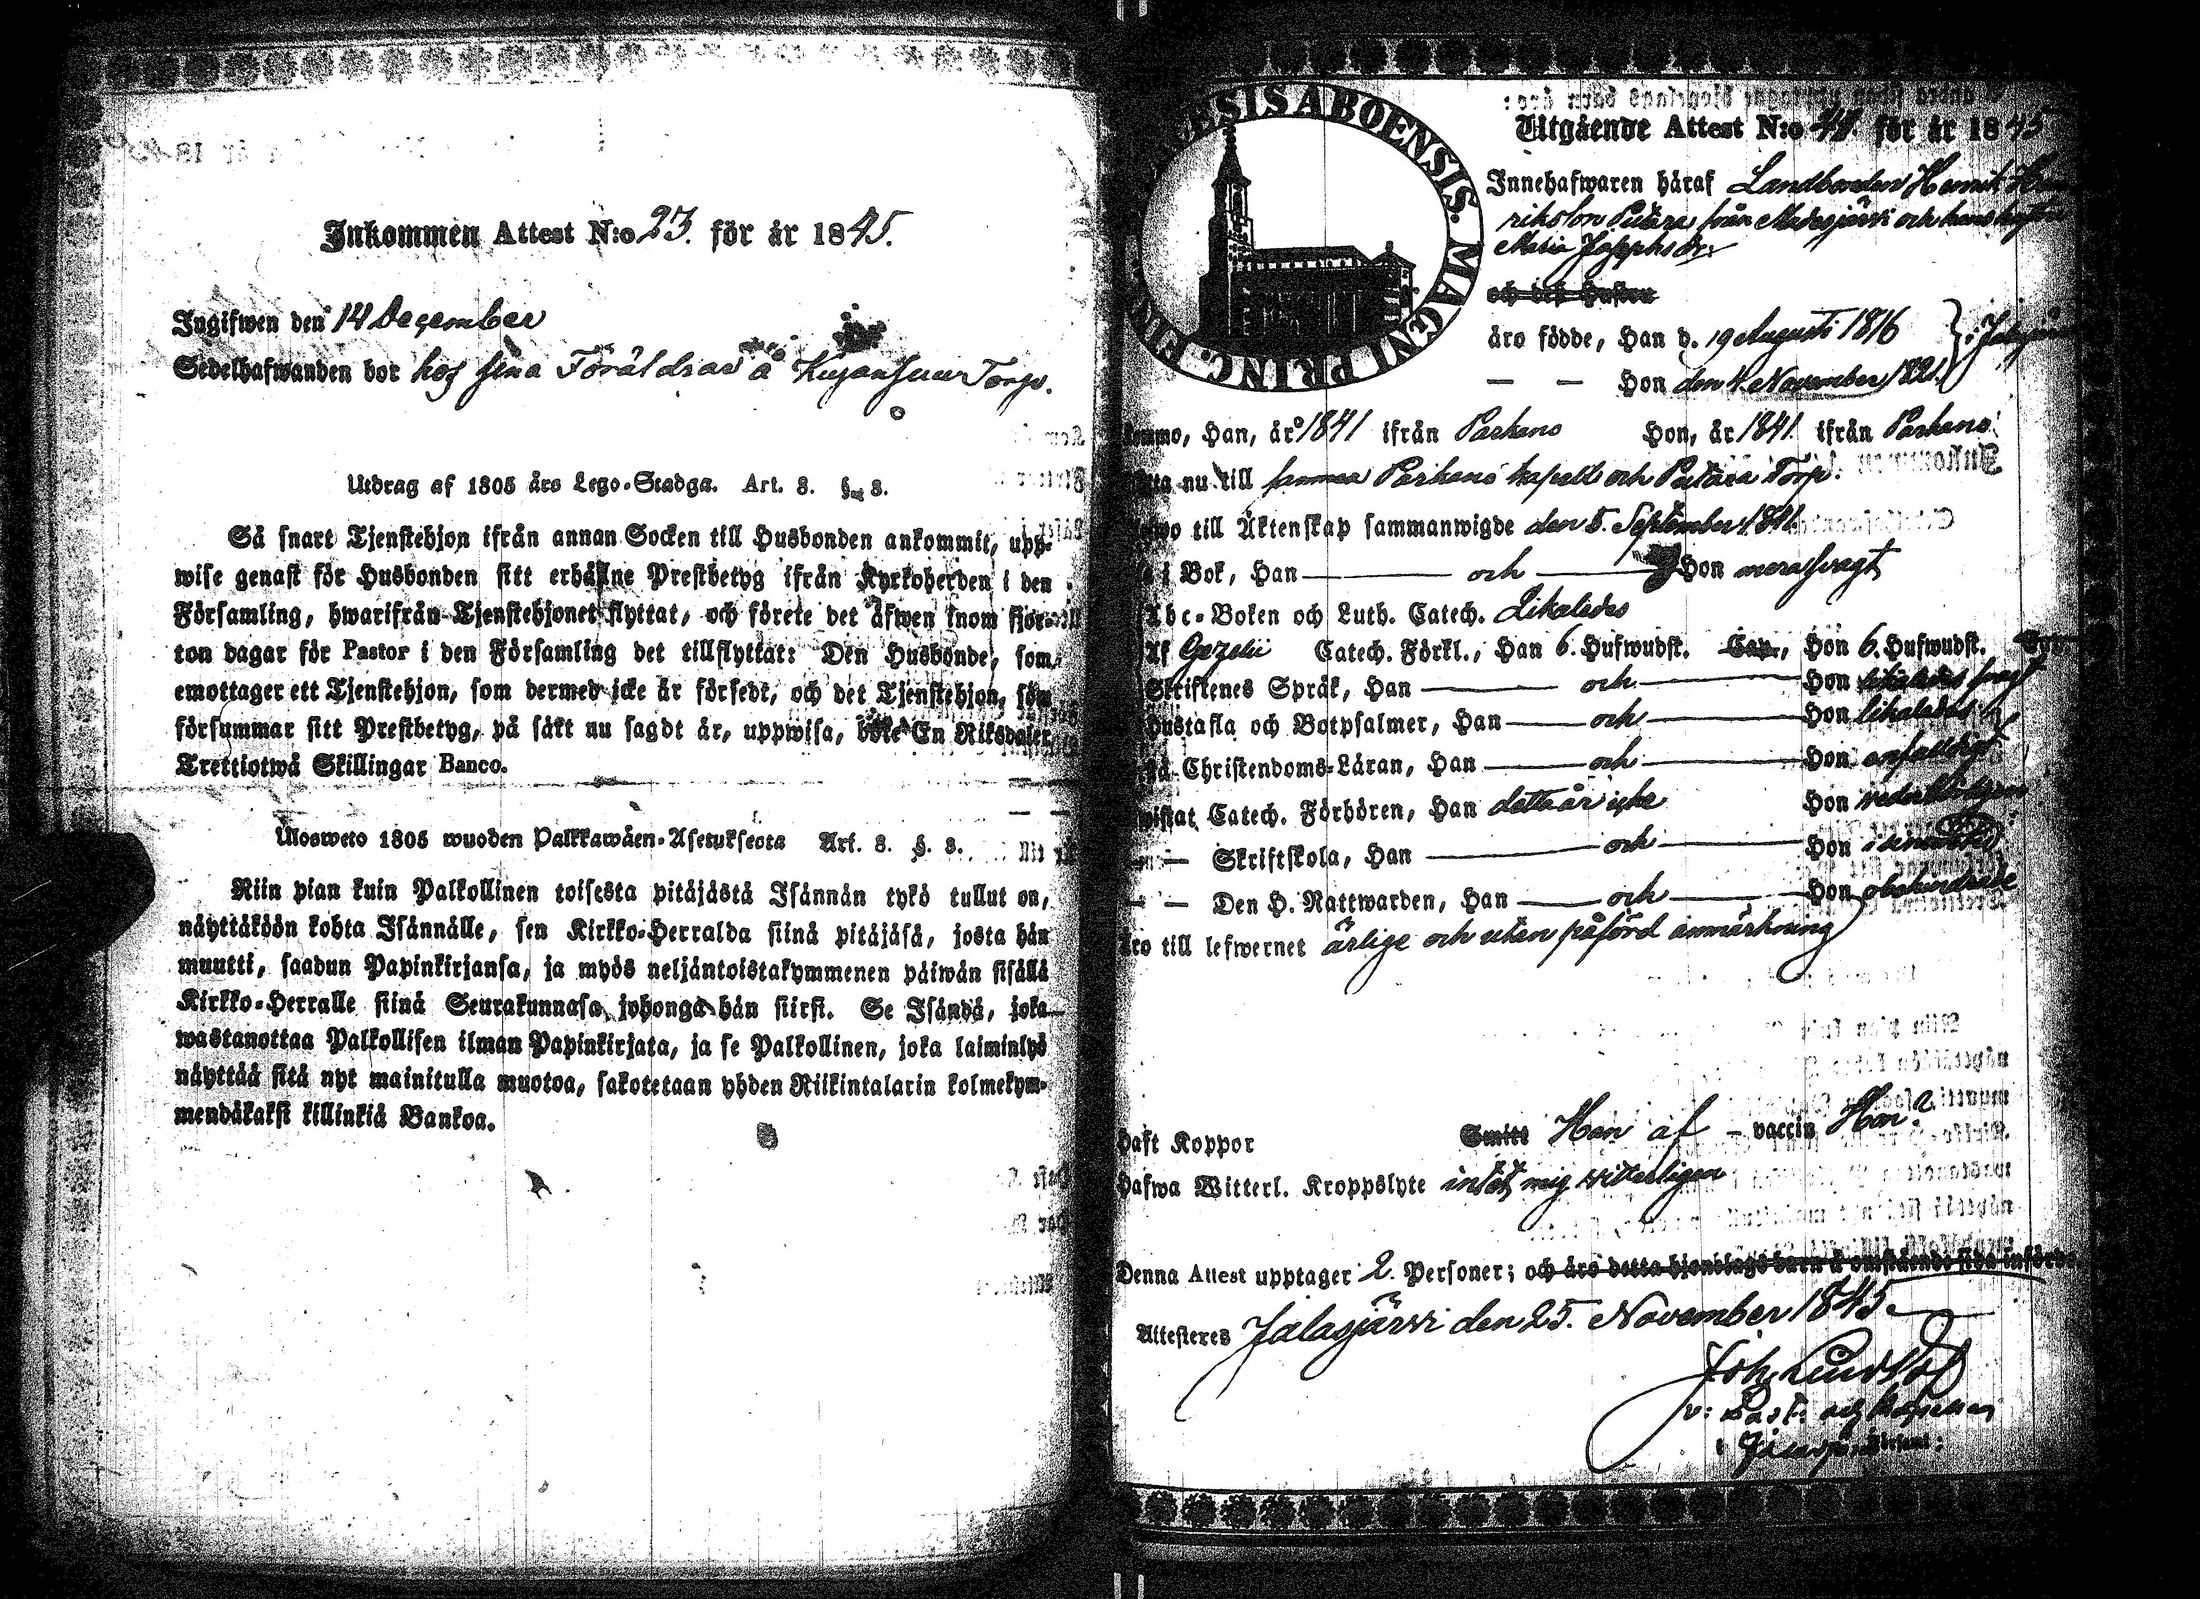 Inkommen Attest N:o 23. för år 1845.
Ingifwen den 14 December
Sedelhafwanden bor hos sina Föräldrar å Torp.
Utdrag af 1805 års Lego-Stadga. Art. 3. §. 3.
Så snart Tjenstehjon ifrån annan Socken till Husbonden ankommit, upp-
wise genast för Husbonden sitt erhållne Prestbetyg ifrån Kyrkoherden i den
Församling, hwarifrån Tjenstehjonet flyttat, och förete det äfwen inom fjor-
ton dagar för Pastor i den Församling det tillflyttat: Den Husbonde, som
emottager ett Tjenstehjon, som dermed icke är försedt, och det Tjenstehjon, som
försummar sitt Prestbetyg, på sätt nu sagdt är, uppwisa, böte En Riksdaler
Trettiotwå Skillingar Banco.
Ulosweto 1805 wuoden Palkkawäen-Asetuksesta Art. 3. §. 3.
Niin pian kuin Palkollinen toisesta pitäjästä Isännän tykö tullut on,
näyttäköön kohta Isännälle, sen Kirkko-Herralda siinä pitäjäsä, josta hän
muutti, saadun Papinkirjansa, ja myös neljäntoistakymmenen päiwän sisällä
Kirkko-Herralle siinä Seurakunnasa, johonga hän siirsi. Se Isändä, joka
wastanottaa Palkollisen ilman Papinkirjata, ja se Palkollinen, joka laiminlyö
näyttää sitä nyt mainitulla muotoa, sakotetaan yhden Riikintalarin kolmekym-
mendäkaksi killinkiä Bankoa.
ABOENSIS. MAGNI PRINC. FIN
Utgående Attest N:o 41. för år 1845
Innehafwaren häraf Landbonden Henrik Hen
rikson Putära från Madesjärvi och hans hustru
Maria Josephsdr:
och dess Hustru
äro födde, Han d. 19 Augusti 1816
— — Hon den 4. November 1821.
kommo, Han, år 1841 ifrån Parkano Hon, år 1841. ifrån Parkano
nu till samma Parkano kapell och Putära Torp.
till Äktenskap sammanwigde den 5. September 1841.
i Bok, Han — och — Hon
Abc-Boken och Luth. Catech. Likaledes
Af Gezelii Catech. Förkl., Han 6. Hufwudst. Cap., Hon 6. Hufwudst.
Skriftenes Språk, Han — och — Hon likaledes
Hustafla och Botpsalmer, Han — och — Hon likaledes
Christendoms-Läran, Han — och — Hon
Catech. Förhören, Han detta år icke Hon
— Skriftskola, Han — och — Hon
— — Den H. Nattwarden, Han — och — Hon obehindrade
äro till lefwernet ärlige och utan påförd anmärkning
Haft Koppor Smitt Han af — vaccin Hon
Hafwa Witterl. Kroppslyte intet mig witterligen
Denna Attest upptager 2. Personer; och äro detta hjonelags barn å omstående sida införde
Attesteres Jalasjärvi den 25. November 1845.
Joh.
v: Past: och Kapellan